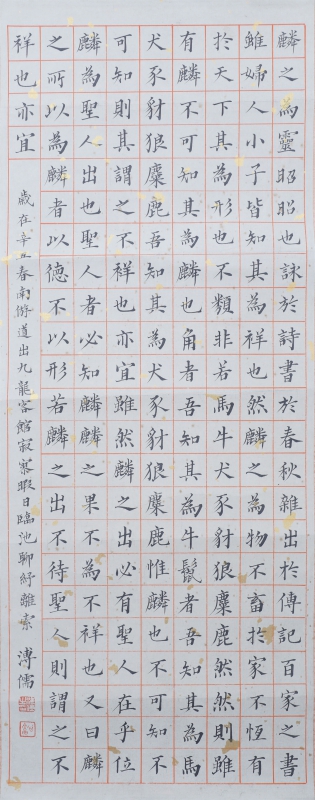 麟之為靈昭昭也詠於詩書於春秋雜出於傳記百家之書
雖婦人小子皆知其為祥也然麟之為物不畜於家不恆有
於天下其為形也不類非若馬牛犬豕豺狼麋鹿然然則雖
有麟不可知其為麟也角者吾知其為牛鬣者吾知其為馬
犬豕豺狼麋鹿吾知其為犬豕豺狼麋鹿惟麟也不可知不
可知則其謂之不祥也亦宜雖然麟之出必有聖人在乎位
麟為聖人出也聖人者必知麟麟之果不為不祥也又曰麟
之所以為麟者以德不以形若麟之出不待聖人則謂之不
祥也亦宜
歲在辛丑春南游道出九龍客館寂寥暇日臨池聊紓離索 溥儒